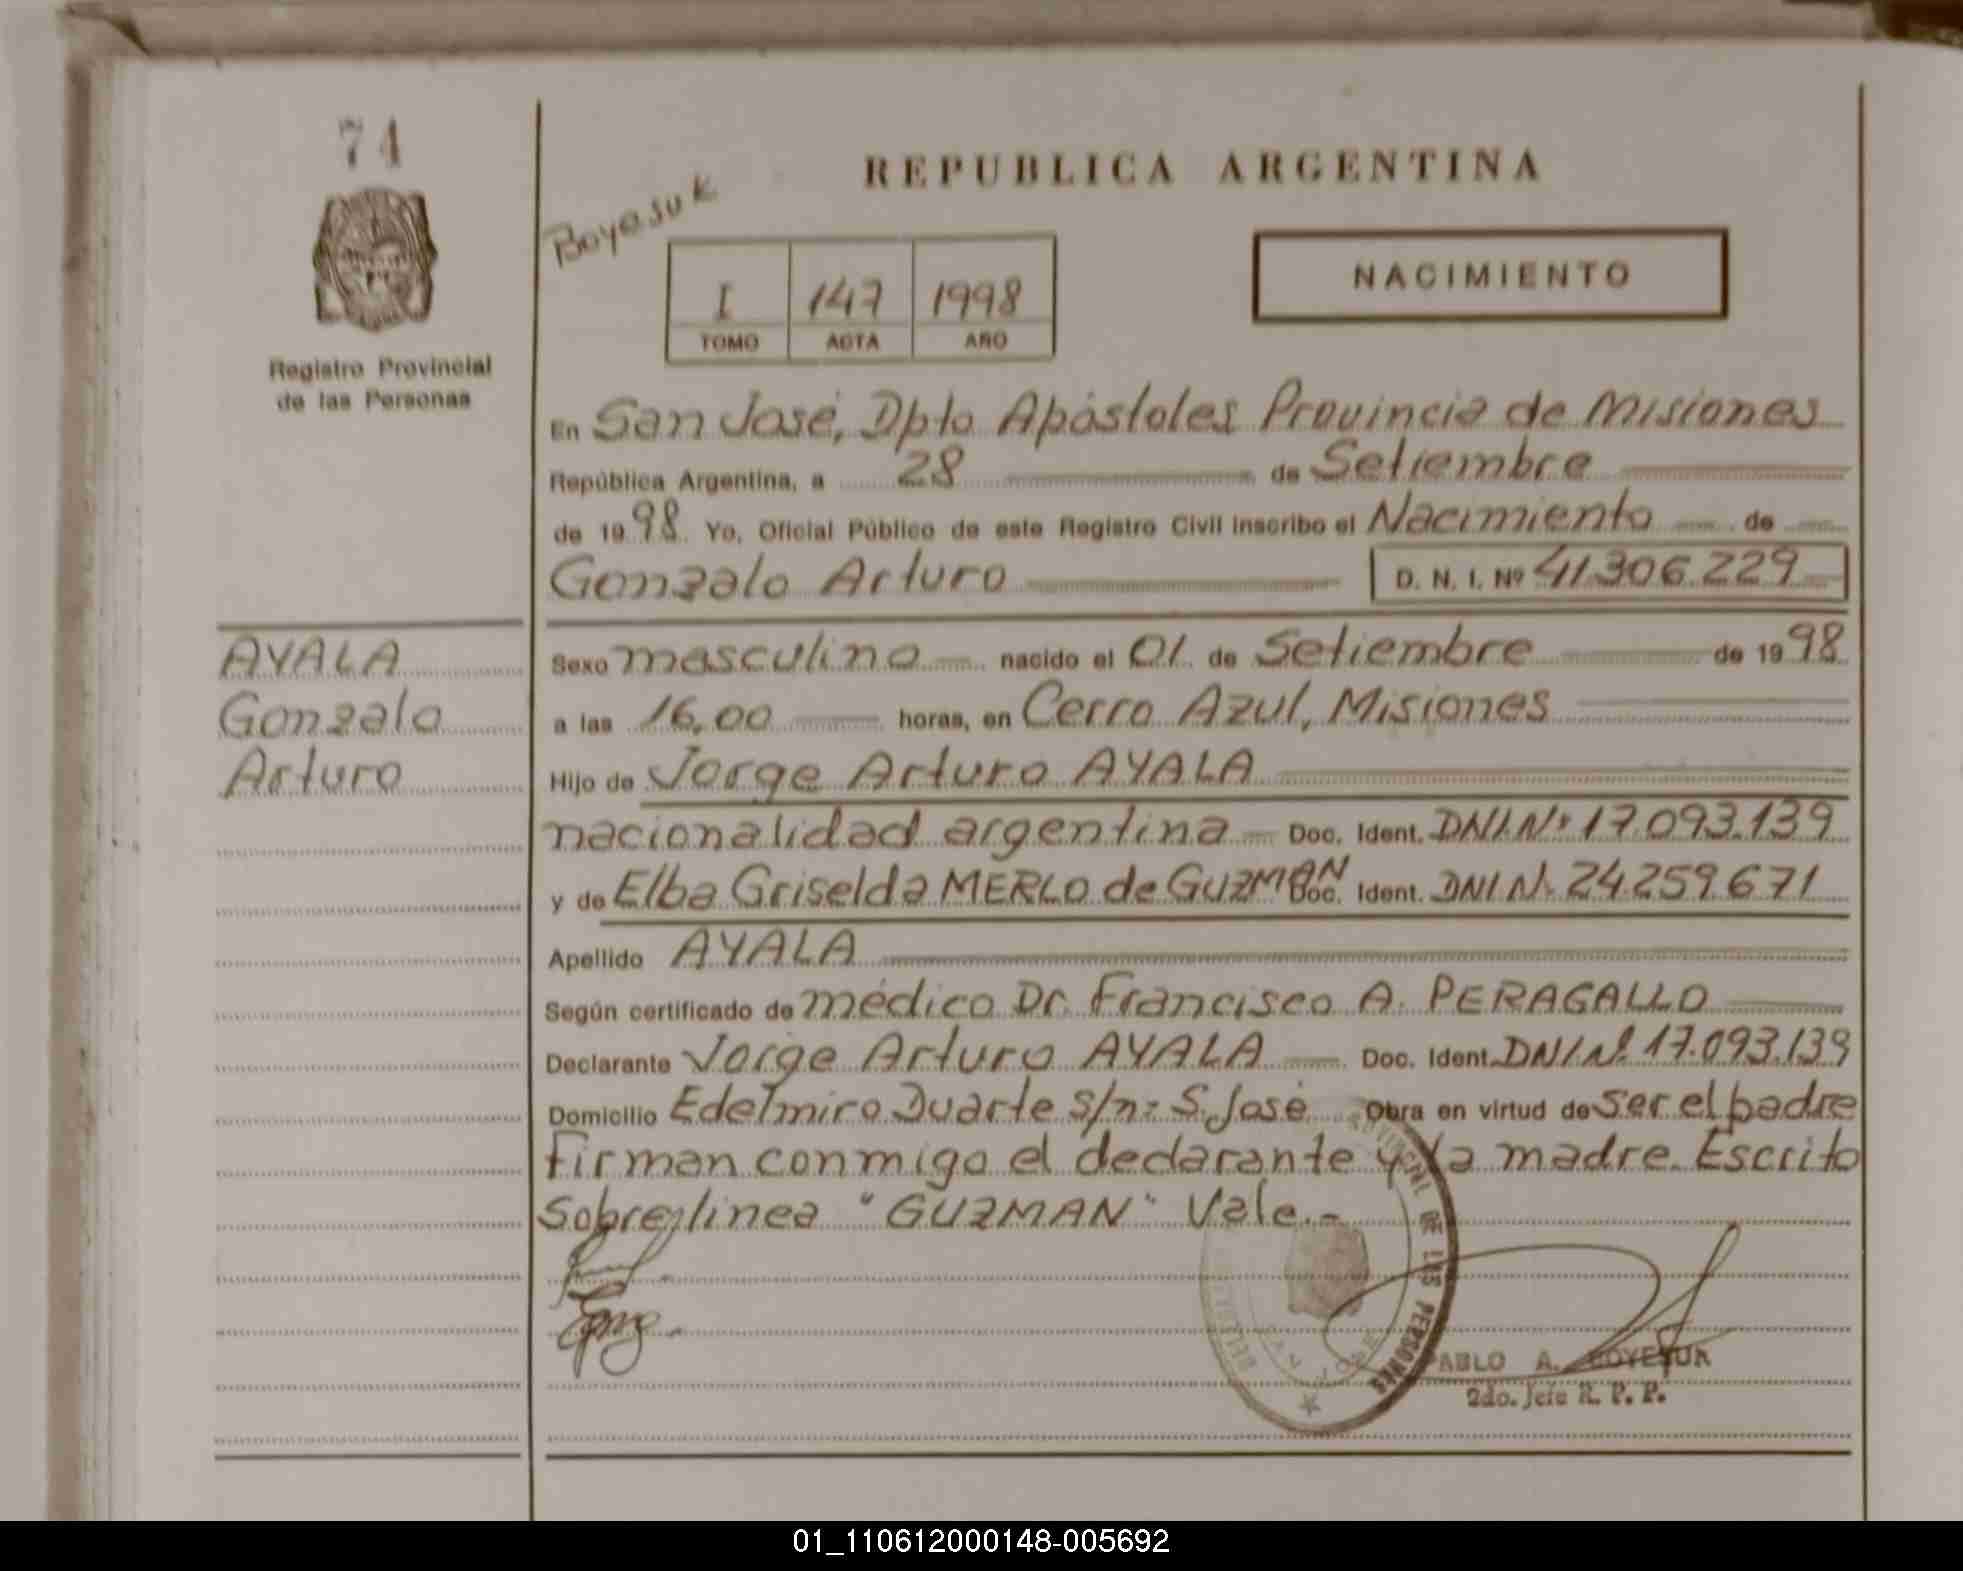 74
Registro Provincial
de las Personas
REPUBLICA ARGENTINA
Boyesuk
I 147 1998
TOMO ACTA AÑO
NACIMIENTO
En San José, Dpto Apóstoles Provincia de Misiones
República Argentina, a 28 de Setiembre
de 1998 Yo, Oficial Público de este Registro Civil inscribo el Nacimiento de
Gonzalo Arturo D. N. I. Nº 41.306.229
AYALA
Gonzalo
Arturo
Sexo masculino nacido el 01 de Setiembre de 1998
a las 16,00 horas, en Cerro Azul, Misiones
Hijo de Jorge Arturo AYALA
nacionalidad argentina Doc. Ident. DNI.Nº 17.093.139
y de Elba Griselda MERLO de GUZMAN Doc. Ident. DNI N. 24.259.671
Apellido AYALA
Según certificado de médico Dr. Francisco A. PERAGALLO
Declarante Jorge Arturo AYALA Doc. Ident. DNI Nº 17.093.139
Domicilio Edelmiro Duarte s/n- S. José Obra en virtud de ser el padre
Firman conmigo el declarante y la madre. Escrito
Sobrelinea "GUZMAN" Vale.-
DE LAS PERSONAS
SAN JOSE
PABLO A. BOYESUK
2do. Jefe R. P. P.
01_110612000148-005692